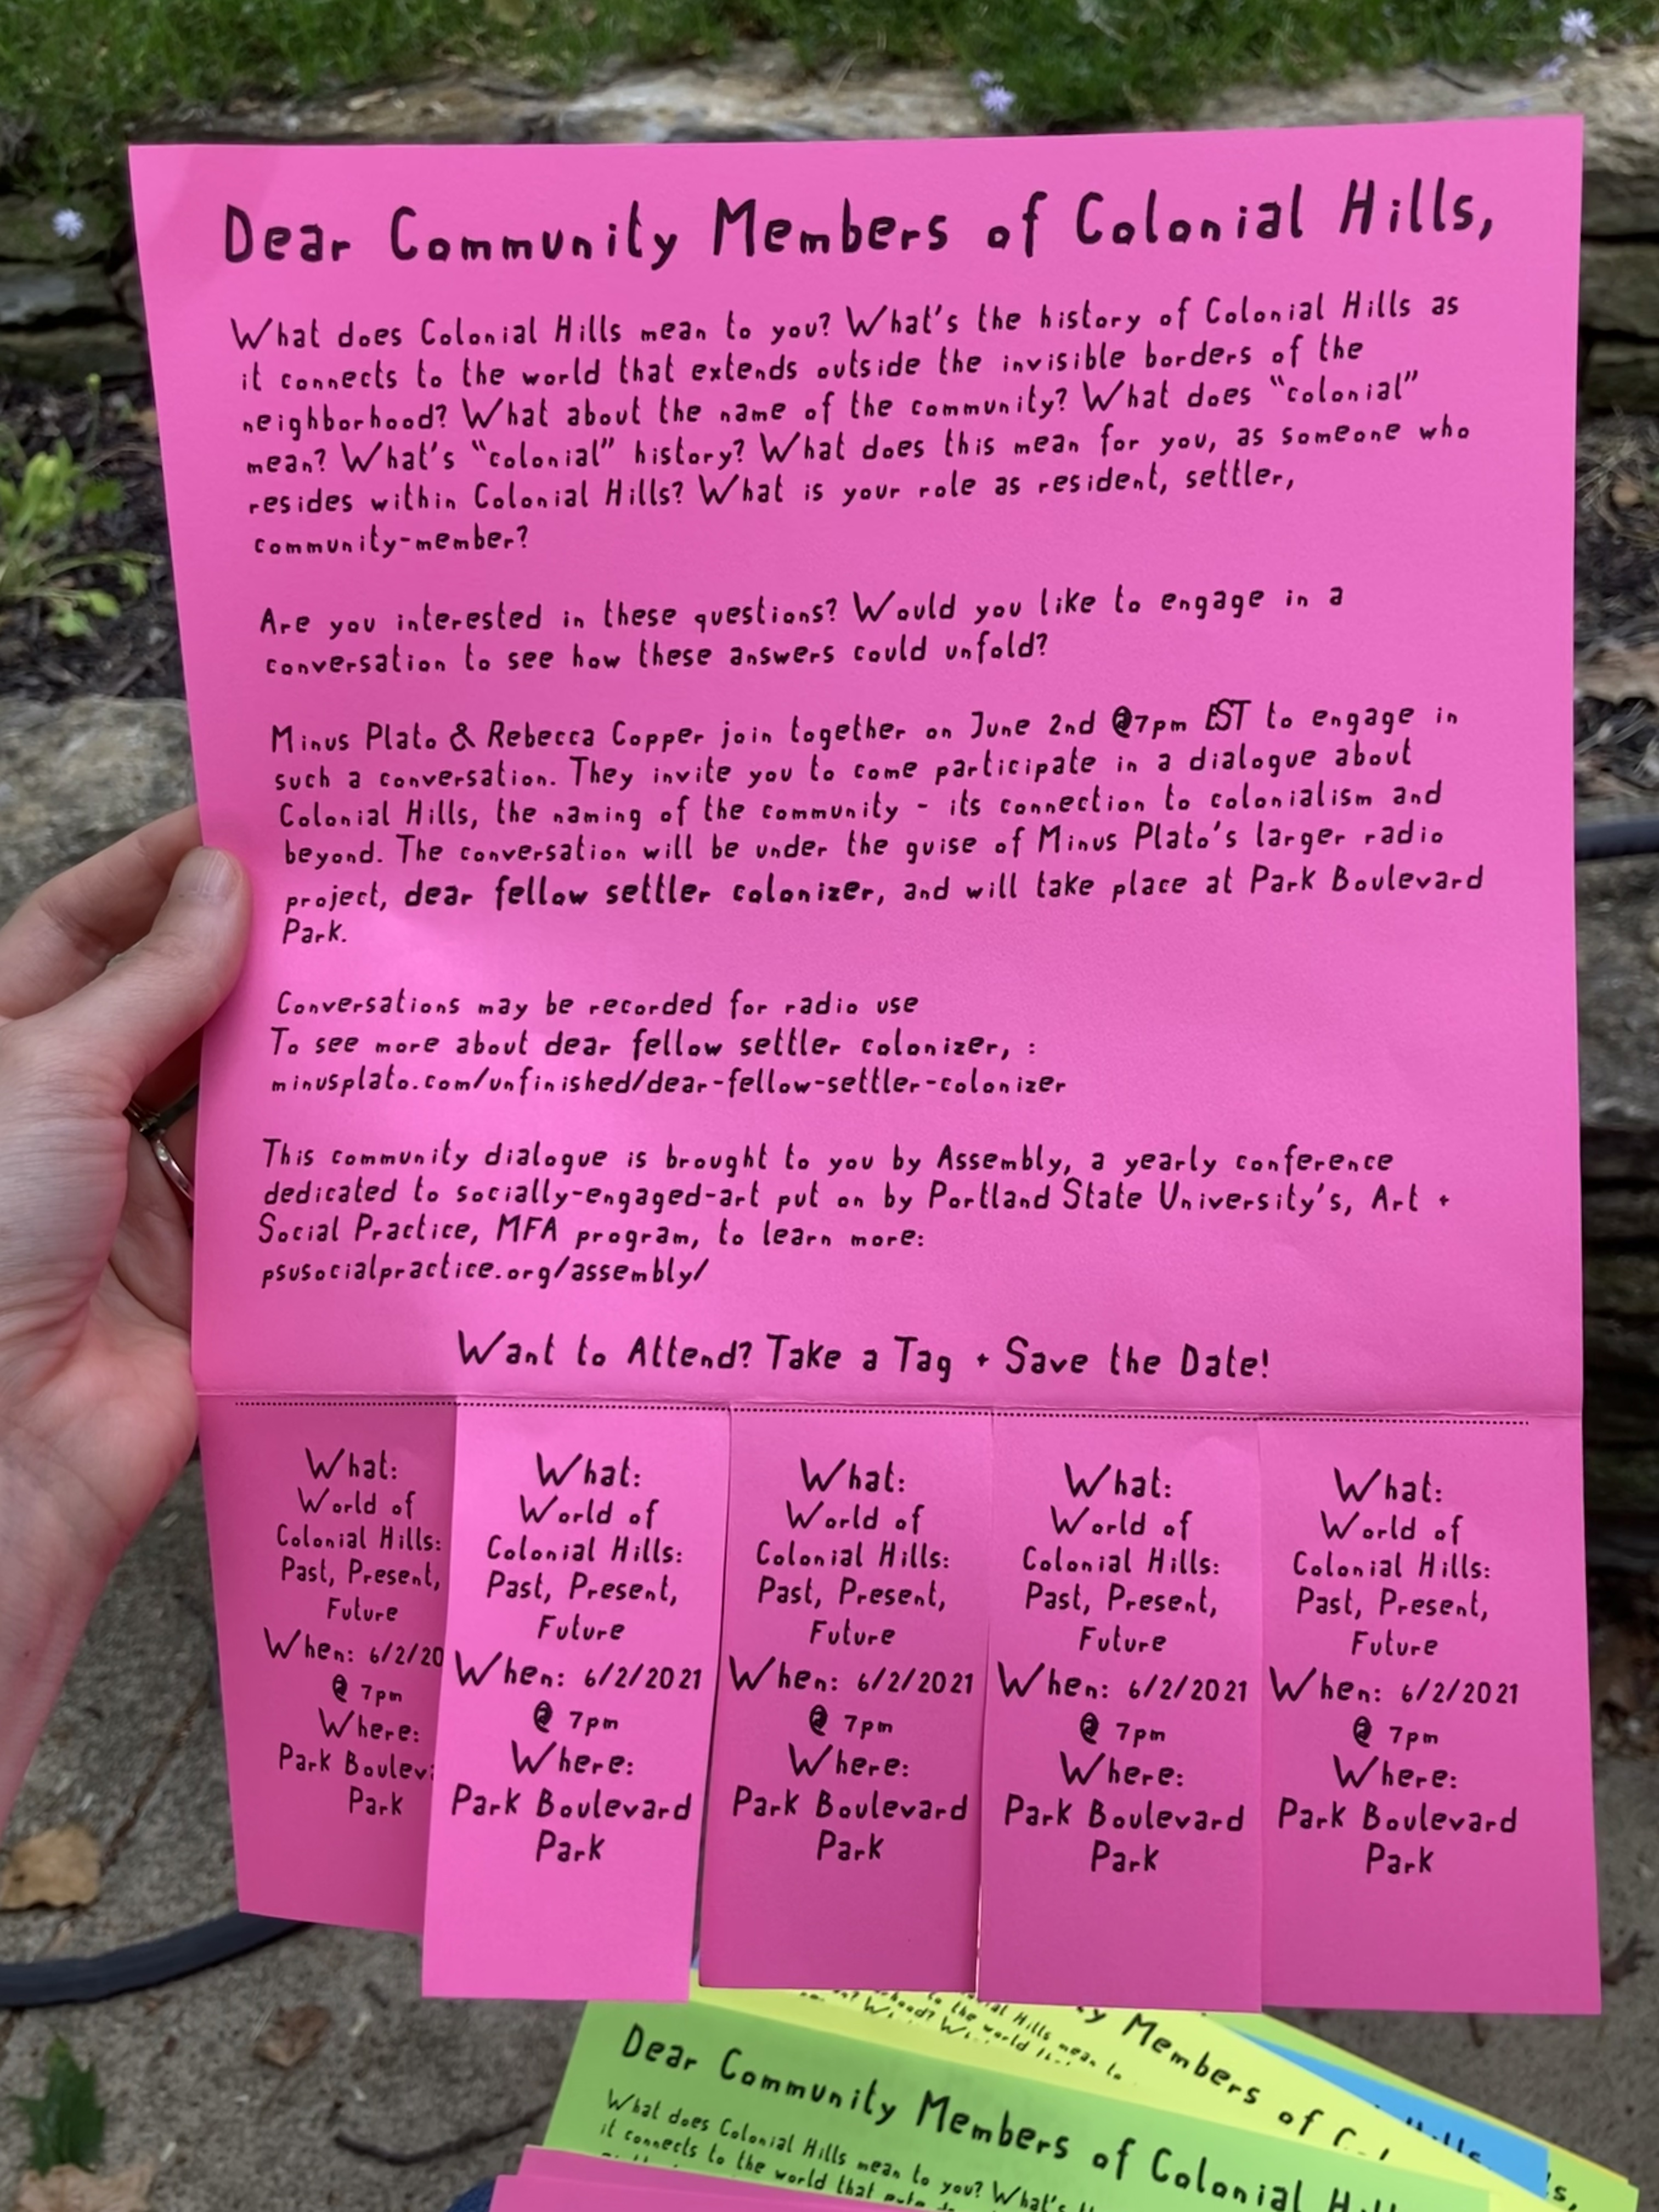 Dear Community Members of Colonial Hills,
What does Colonial Hills mean to you? What's the history of Colonial Hills as
it connects to the world that extends outside the invisible borders of the
neighborhood? What about the name of the community? What does "colonial"
mean? What's "colonial" history? What does this mean for you, as someone who
resides within Colonial Hills? What is your role as resident, settler,
community-member?
Are you interested in these questions? Would you like to engage in a
conversation to see how these answers could unfold?
Minus Plato & Rebecca Copper join together on June 2nd @7pm EST to engage in
such a conversation. They invite you to come participate in a dialogue about
Colonial Hills, the naming of the community - its connection to colonialism and
beyond. The conversation will be under the guise of Minus Plato's larger radio
project, dear fellow settler colonizer, and will take place at Park Boulevard
Park.
Conversations may be recorded for radio use
To see more about dear fellow settler colonizer, :
minusplato.com/unfinished/dear-fellow-settler-colonizer
This community dialogue is brought to you by Assembly, a yearly conference
dedicated to socially-engaged-art put on by Portland State University's, Art +
Social Practice, MFA program, to learn more:
psusocialpractice.org/assembly/
Want to Attend? Take a Tag + Save the Date!
What:
World of
Colonial Hills:
Past, Present,
Future
When: 6/2/20
@ 7pm
Where:
Park Boulev
Park
What:
World of
Colonial Hills:
Past, Present,
Future
When: 6/2/2021
@ 7pm
Where:
Park Boulevard
Park
What:
World of
Colonial Hills:
Past, Present,
Future
When: 6/2/2021
@ 7pm
Where:
Park Boulevard
Park
What:
World of
Colonial Hills:
Past, Present,
Future
When: 6/2/2021
@ 7pm
Where:
Park Boulevard
Park
What:
World of
Colonial Hills:
Past, Present,
Future
When: 6/2/2021
@ 7pm
Where:
Park Boulevard
Park
Members of
Hills mean to
to the world
Dear Community Members of Colonial
What does Colonial Hills mean to you? What's
it connects to the world that